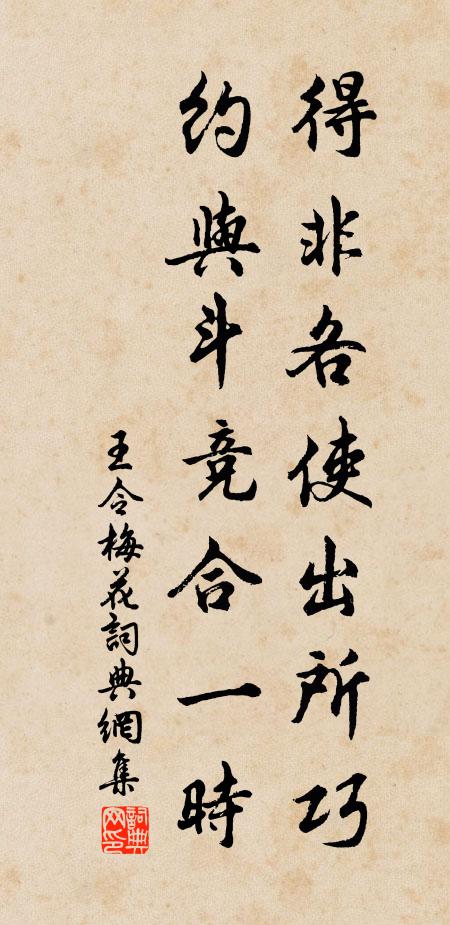 得非各使出所巧
約與斗竞合一時
王令梅花詞典網集
詞典
网印